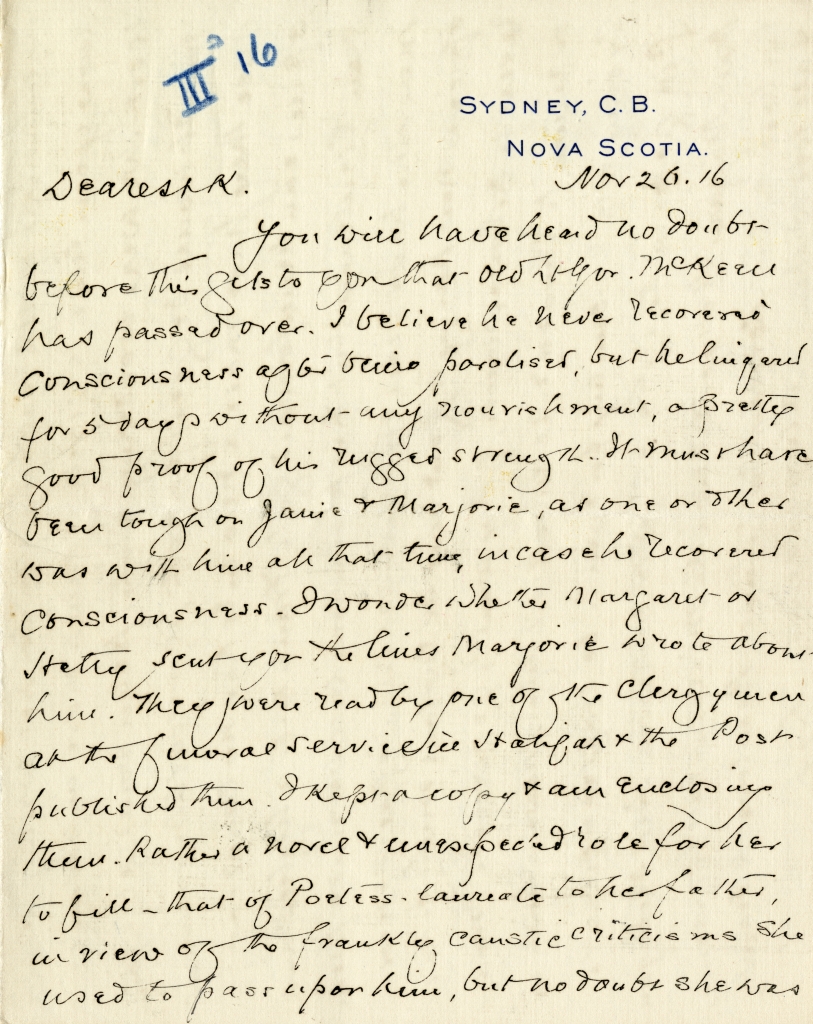 III 16
SYDNEY, C. B.
NOVA SCOTIA.
Nov 26. 16
Dearest K.
You will have heard no doubt
before this gets to you that old Lt Gov. McKeen
has passed over. I believe he never recovered
Consciousness after being paralised, but he lingered
for 5 days without any nourishment, a pretty
good proof of his rugged strength. It must have
been tough on Janie & Marjorie, as one or other
was with him all that time, in case he recovered
Consciousness. I wonder whether Margaret or
Hetty sent you the lines Marjorie wrote about
him. They were read by one of the Clergymen
at the funeral service in Halifax & the Post
published them. I kept a copy & am enclosing
them. Rather a novel & unexpected role for her
to fill - that of Poetess-laureate to her father,
in view of the frankly caustic criticisms she
used to pass upon him, but no doubt she was